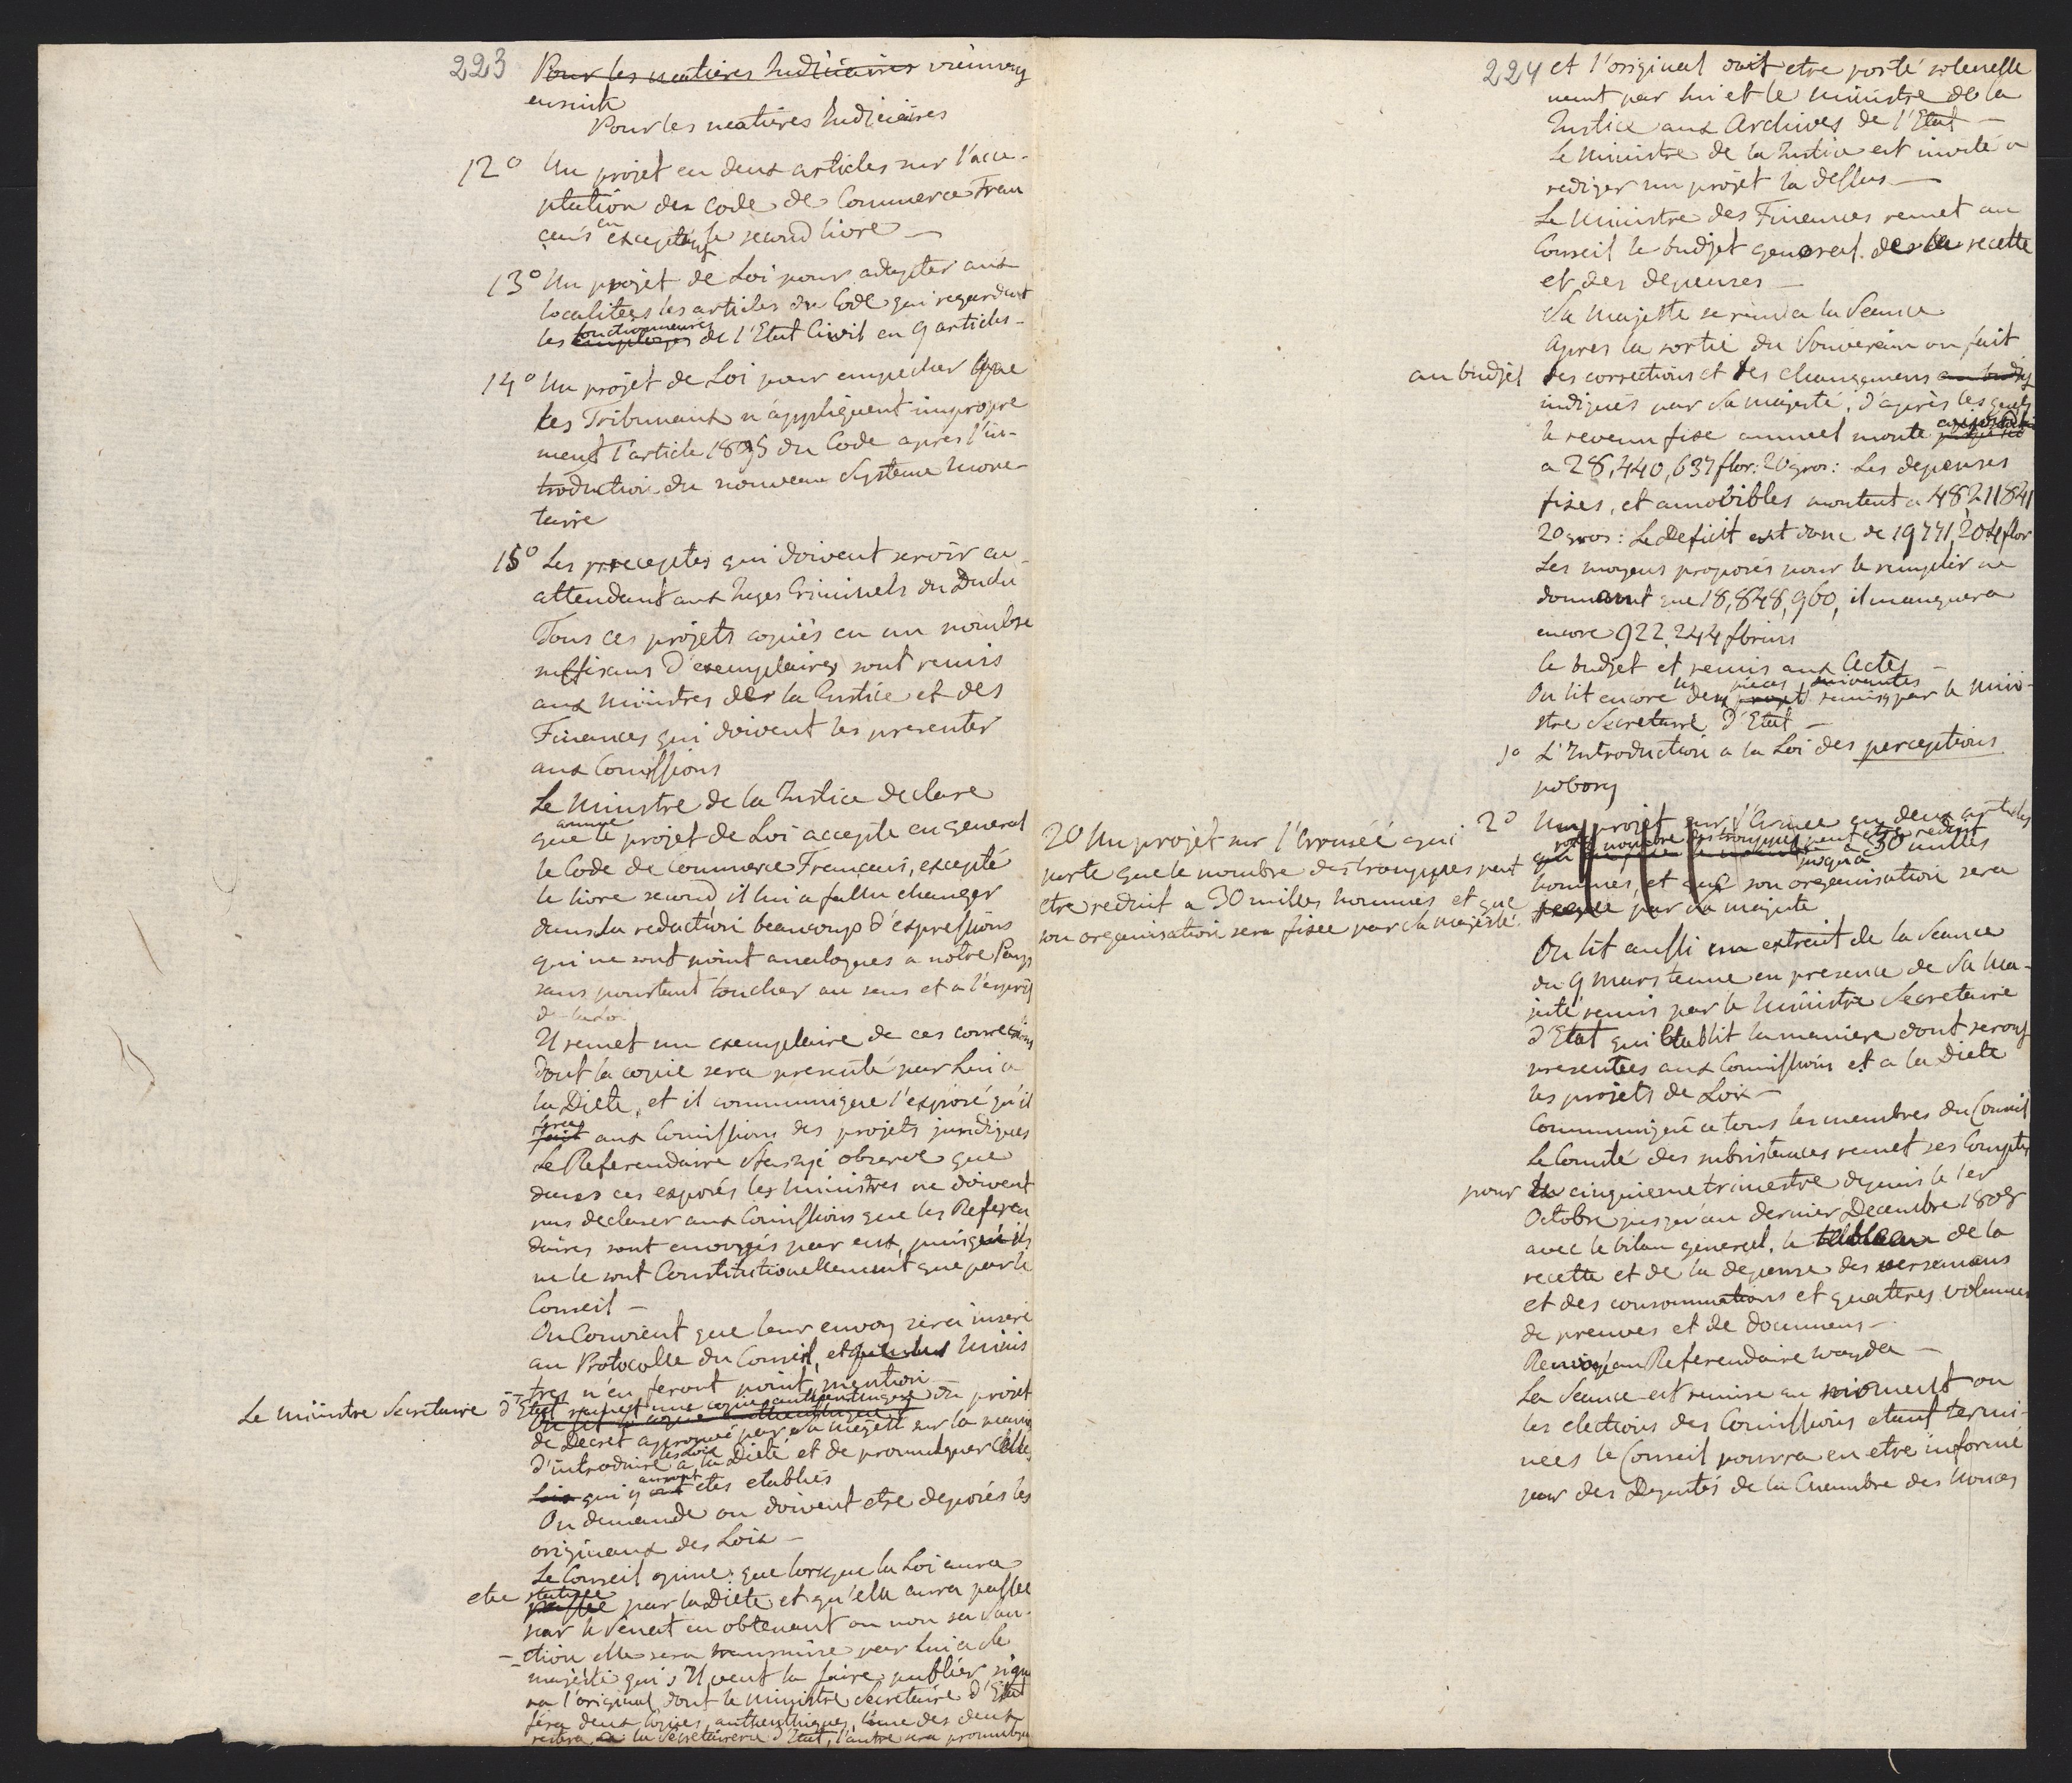 223
Pour les matieres Judiciaires viennent
ensuite
Pour les matieres Judiciaires
12° Un projet en deux articles sur l'acce-
ptation des Code de Commerce Fran
çais en exceptant le second livre —
13° Un projet de Loi pour adapter aux
localitees les articles du Code qui regardent
les employes fonctionneurs de l'Etat Civil en 9 articles -
14° Un projet de Loi pour empecher que
les Tribunaux n'appliquent impropre
ment l'article 1895 du Code apres l'in-
troduction du nouveau Systeme mone-
taire
15° Les preceptes qui doivent servir en
attendant aux Juges Criminels du Duché
Tous ces projets copiés en un nombre
suffisans d'exemplaires sont remis
aux ministres de la Justice et des
Finances qui doivent les presenter
aux Comissions
Le Ministre de la Justice declare
que comme le projet de Loi accepte en general
le Code de Commerce Francais, excepté
le livre second, il lui a fallu changer
dans la redaction beaucoup d'expressions
qui ne sont point analogues a notre Pays
sans pourtant toucher au sens et a l'esprit
de la Loi
Il remet un exemplaire de ces corrections
dont la copie sera presenté par Lui a
la Diete, et il communique l'exposé qu'il
fait fera aux Comissions des projets juridiques
Le Referendaire Staszye observe que
dans ces exposés les Ministres ne doivent
pas declarer aux Comissions que les Referen
daires sont envoyés par eux, puisqu'ils
ne le sont Constitutionellement que par le
Conseil —
On Convient que leur envoy sera inseré
au Protocolle du Conseil, et que les Minis
tres n'en feront point mention —
Le Ministre Secretaire d'Etat remet une copie authentique du projet
de Decret approuvé par Sa Majesté sur la maniere
d'introduire les Loix a la Diete et de promulguer celles
Loix qui y auront etes etablies
On demande ou doivent etre deposés les
originaux des Loix —
Le Conseil opine: que lorsque la Loi aura
ete passée statuée par la Diete et qu'elle aura passée
par le Senat en obtenant ou non sa San-
ction elle sera transmise par lui a Sa
majesté qui s'Il veut la faire publier signe
ra l'original dont le Ministre Secretaire d'Etat
fera deux Copies authentiques, l'une des deux
restera a la Secretairerie d'Etat, l'autre sera promulguée
224 et l'original doit etre porté solenelle
ment par lui et le Ministre de la
Justice aux Archives de l'Etat —
Le Ministre de la Justice est invité a
rediger un projet la dessus —
Le Ministre des Finances remet au
Conseil le budjet general de la recette
et des depenses —
Sa Majesté se rend a la Seance
Apres la sortie du Souverain on fait
au budjet des corrections et des changemens au budjet
indiqués par Sa majesté, d'après les quels
le revenu fixe annuel monte
a 28,440,637 flor: 20 gros: Les depenses
fixes, et amovibles montent a 48,211841
20 gros: Le Deficit est donc de 19771,204 flor
Les moyens proposés pour le remplir ne
donnant que 18,848,960, il manquera
encore 922,244 florins
Le budjet est remis aux Actes —
On lit encore les deux projets pieces suivantes remis par le Mini-
stre Secretaire d'Etat —
1° L'Introduction a la Loi des perceptions
pobory
2° Un projet sur l'Armée en deux articles
nombre des trouppes peut etre reduit a 30 milles
hommes, et que son organisation sera
par Sa majesté
20 Un projet sur l'Armée qui
porte que le nombre des trouppes peut
etre reduit a 30 milles hommes et que
son organisation sera fixée par Sa Majesté.
On lit aussi un extrait de la Seance
du 9 mars tenue en presence de Sa Ma-
jesté remis par le Ministre Secretaire
d'Etat qui etablit la maniere dont seront
presentées aux Comissions et a la Diete
les projets de Loix —
Communiqué a tous les membres du Conseil
Le Comité des subsistances remet ses Comptes
pour le cinquieme trimestre depuis le 1er
Octobre jusqu'au dernier Decembre 1808
avec le bilan general, le tableau de la
recette et de la depense des versemens
et des consommations et quatres volumes
de preuves et de documens —
Renvoyé au Referendaire Wayda —
La Seance est remise au moment ou
les elections des Comissions etant termi-
nées le Conseil pourra en etre informé
par des Deputés de la Chambre des Nonces